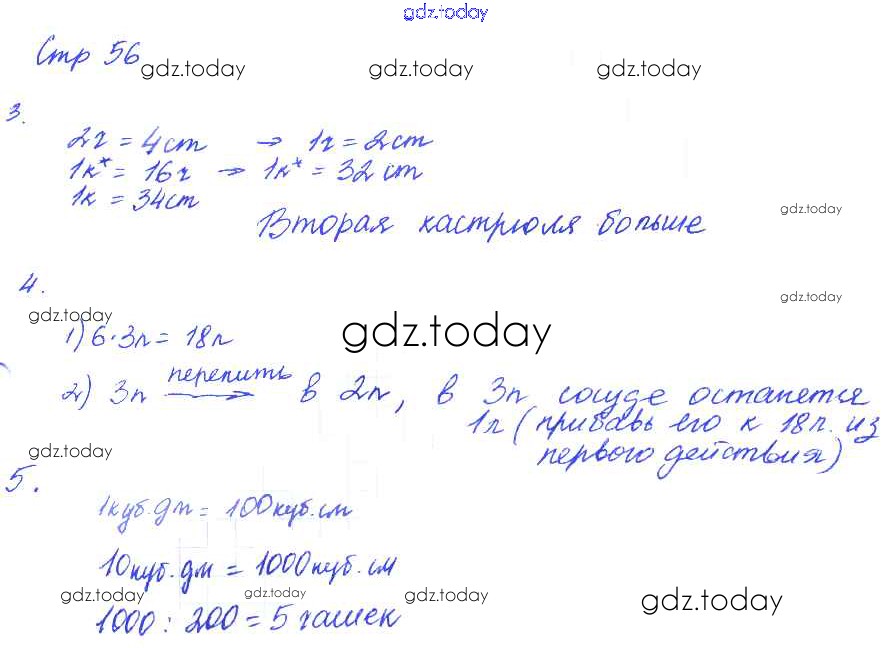 gdz.today
Стр 56
gdz.today gdz.today gdz.today
3.
2ч = 4ст → 1ч = 2ст
1к* = 16ч → 1к* = 32ст
1к = 34ст
gdz.today
Вторая кастрюля больше
4.
gdz.today
gdz.today
gdz.today
1) 6·3л = 18л
2) 3л перелить → в 2л, в 3л сосуде останется
1л (прибавь его к 18л. из
gdz.today
первого действия)
5.
1куб.дм = 100куб.см
10куб.дм = 1000куб.см
gdz.today gdz.today gdz.today gdz.today
1000 : 200 = 5 чашек